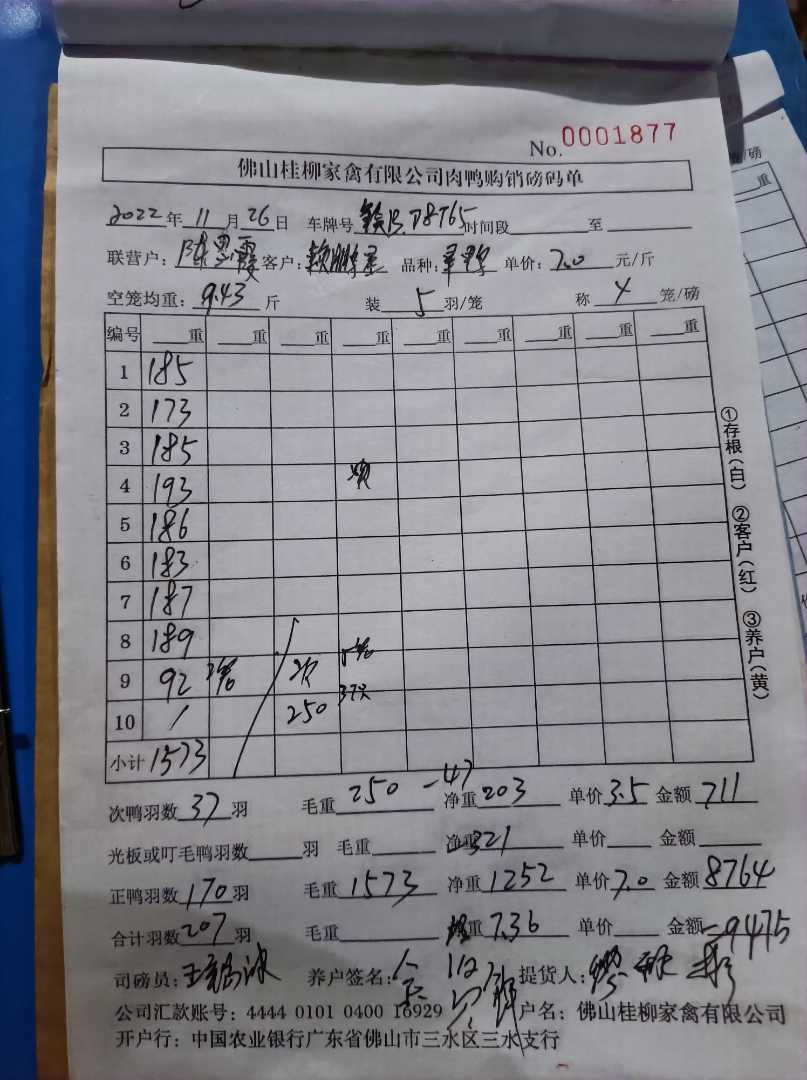 No. 0001877
佛山桂柳家禽有限公司肉鸭购销磅码单
2022年 11月 26日 车牌号 D8T65 时间段 至
联营户: 客户: 品种: 单价: 7.0 元/斤
空笼均重: 9.43 斤 装 5 羽/笼 称 4 笼/磅
编号 重 重 重 重 重 重 重 重
1 185
2 173
3 185
4 193
5 186
6 183
7 187
8 189
9 92 次
10 / 250 37只
小计 1573
次鸭羽数 37 羽 毛重 250 -47 净重 203 单价 3.5 金额 711
光板或叮毛鸭羽数 羽 毛重 净重 321 单价 金额
正鸭羽数 170 羽 毛重 1573 净重 1252 单价 7.0 金额 8764
合计羽数 207 羽 毛重 重 7.36 单价 金额 =9475
司磅员: 养户签名: 提货人:
公司汇款账号: 4444 0101 0400 16929 户名: 佛山桂柳家禽有限公司
开户行: 中国农业银行广东省佛山市三水区三水支行
①存根(白) ②客户(红) ③养户(黄)